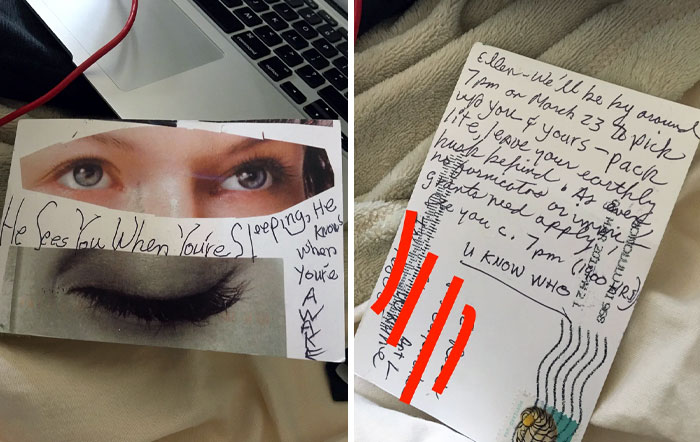 He Sees You When You're Sleeping, He
knows
when
you're
AWAKE
Ellen - We'll be by around
7pm on March 23 to pick
up you & yours - pack
lite, leave your earthly
husk behind. As ever,
no fornicators or
grants need apply!
See you c. 7pm (1900
U KNOW WHO
HONOLULU HI 968